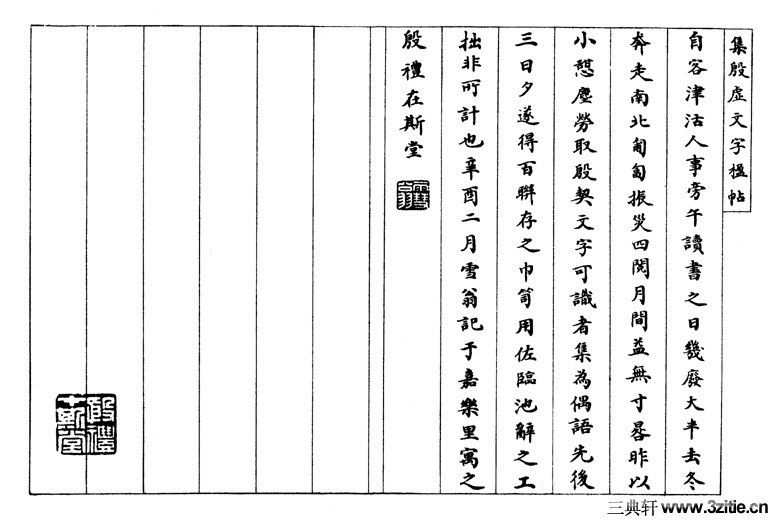 集殷虛文字楹帖
自客津沽人事旁午讀書之日幾廢大半去冬
奔走南北匍匐振災四閱月間益無寸晷昨以
小憩塵勞取殷契文字可識者集為偶語先後
三日夕遂得百聯存之巾笥用佐臨池辭之工
拙非所計也辛酉二月雪翁記于嘉樂里寓之
殷禮在斯堂
雪翁
殷禮在斯堂
三典轩 www.3zitie.cn